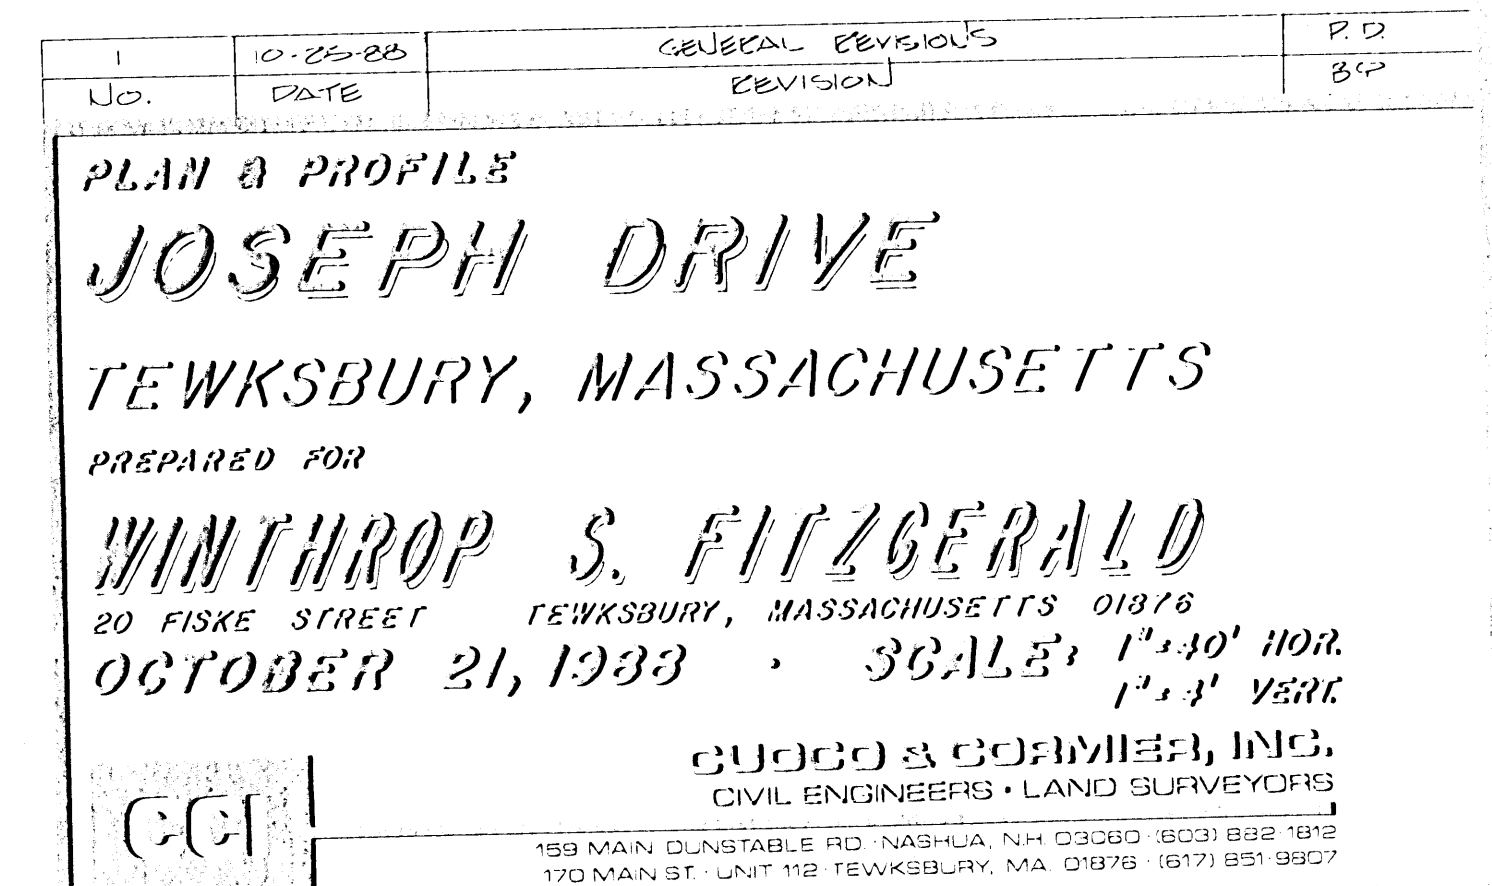 1 10-25-88 GENERAL REVISIONS P.D.
NO. DATE REVISION BY
PLAN & PROFILE
JOSEPH DRIVE
TEWKSBURY, MASSACHUSETTS
PREPARED FOR
WINTHROP S. FITZGERALD
20 FISKE STREET TEWKSBURY, MASSACHUSETTS 01876
OCTOBER 21, 1988 SCALE: 1"=40' HOR.
1"=4' VERT.
CUOCO & CORMIER, INC.
CIVIL ENGINEERS • LAND SURVEYORS
CCI
159 MAIN DUNSTABLE RD. · NASHUA, N.H. 03060 · (603) 882·1812
170 MAIN ST. · UNIT 112 · TEWKSBURY, MA. 01876 · (617) 851·9807